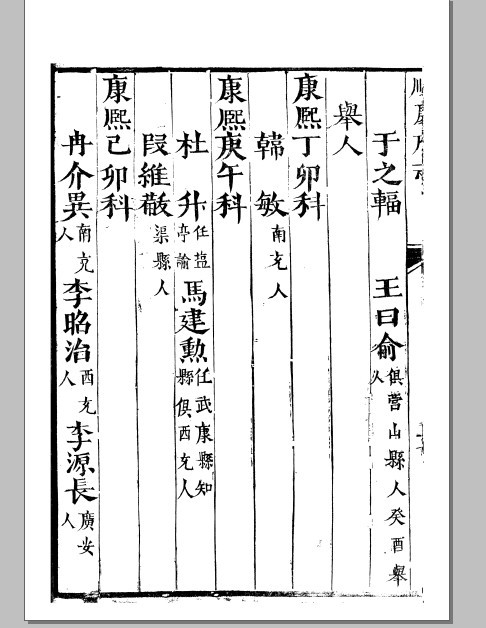 于之輻　王曰俞俱營山縣人癸酉舉人
舉人
康熙丁卯科
韓敏南充人
康熙庚午科
杜升任盐亭諭　馬建勲任武康縣知縣俱西充人
叚維渠縣人
康熙己卯科
冉介異南充人　李昭治西充人　李源長廣安人